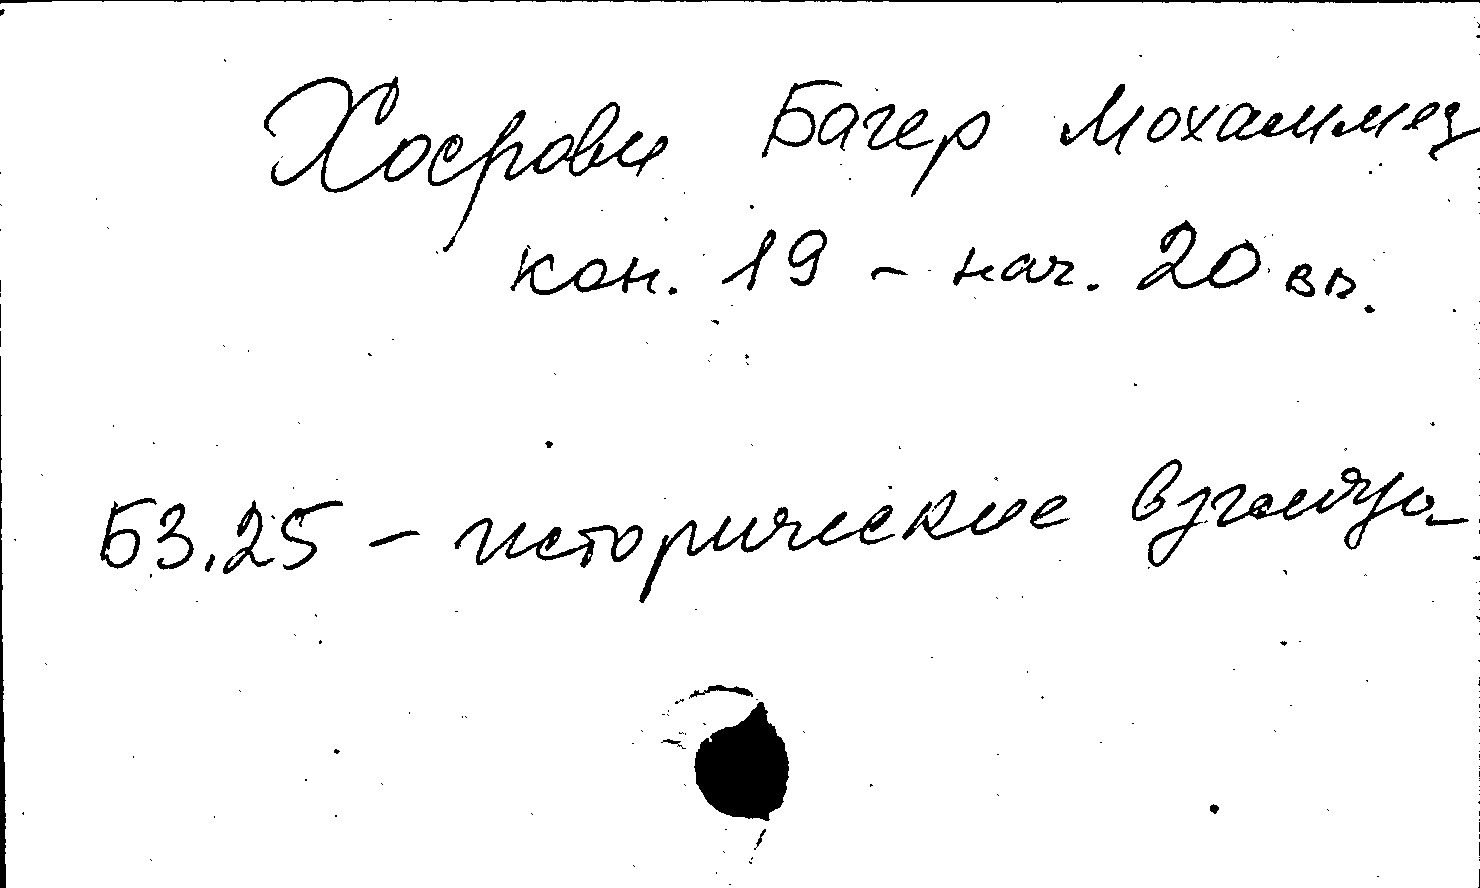 Хосрови Багер Мохаммед
кон. 19 – нач. 20 вв.
Б3.25 – исторические взгляды